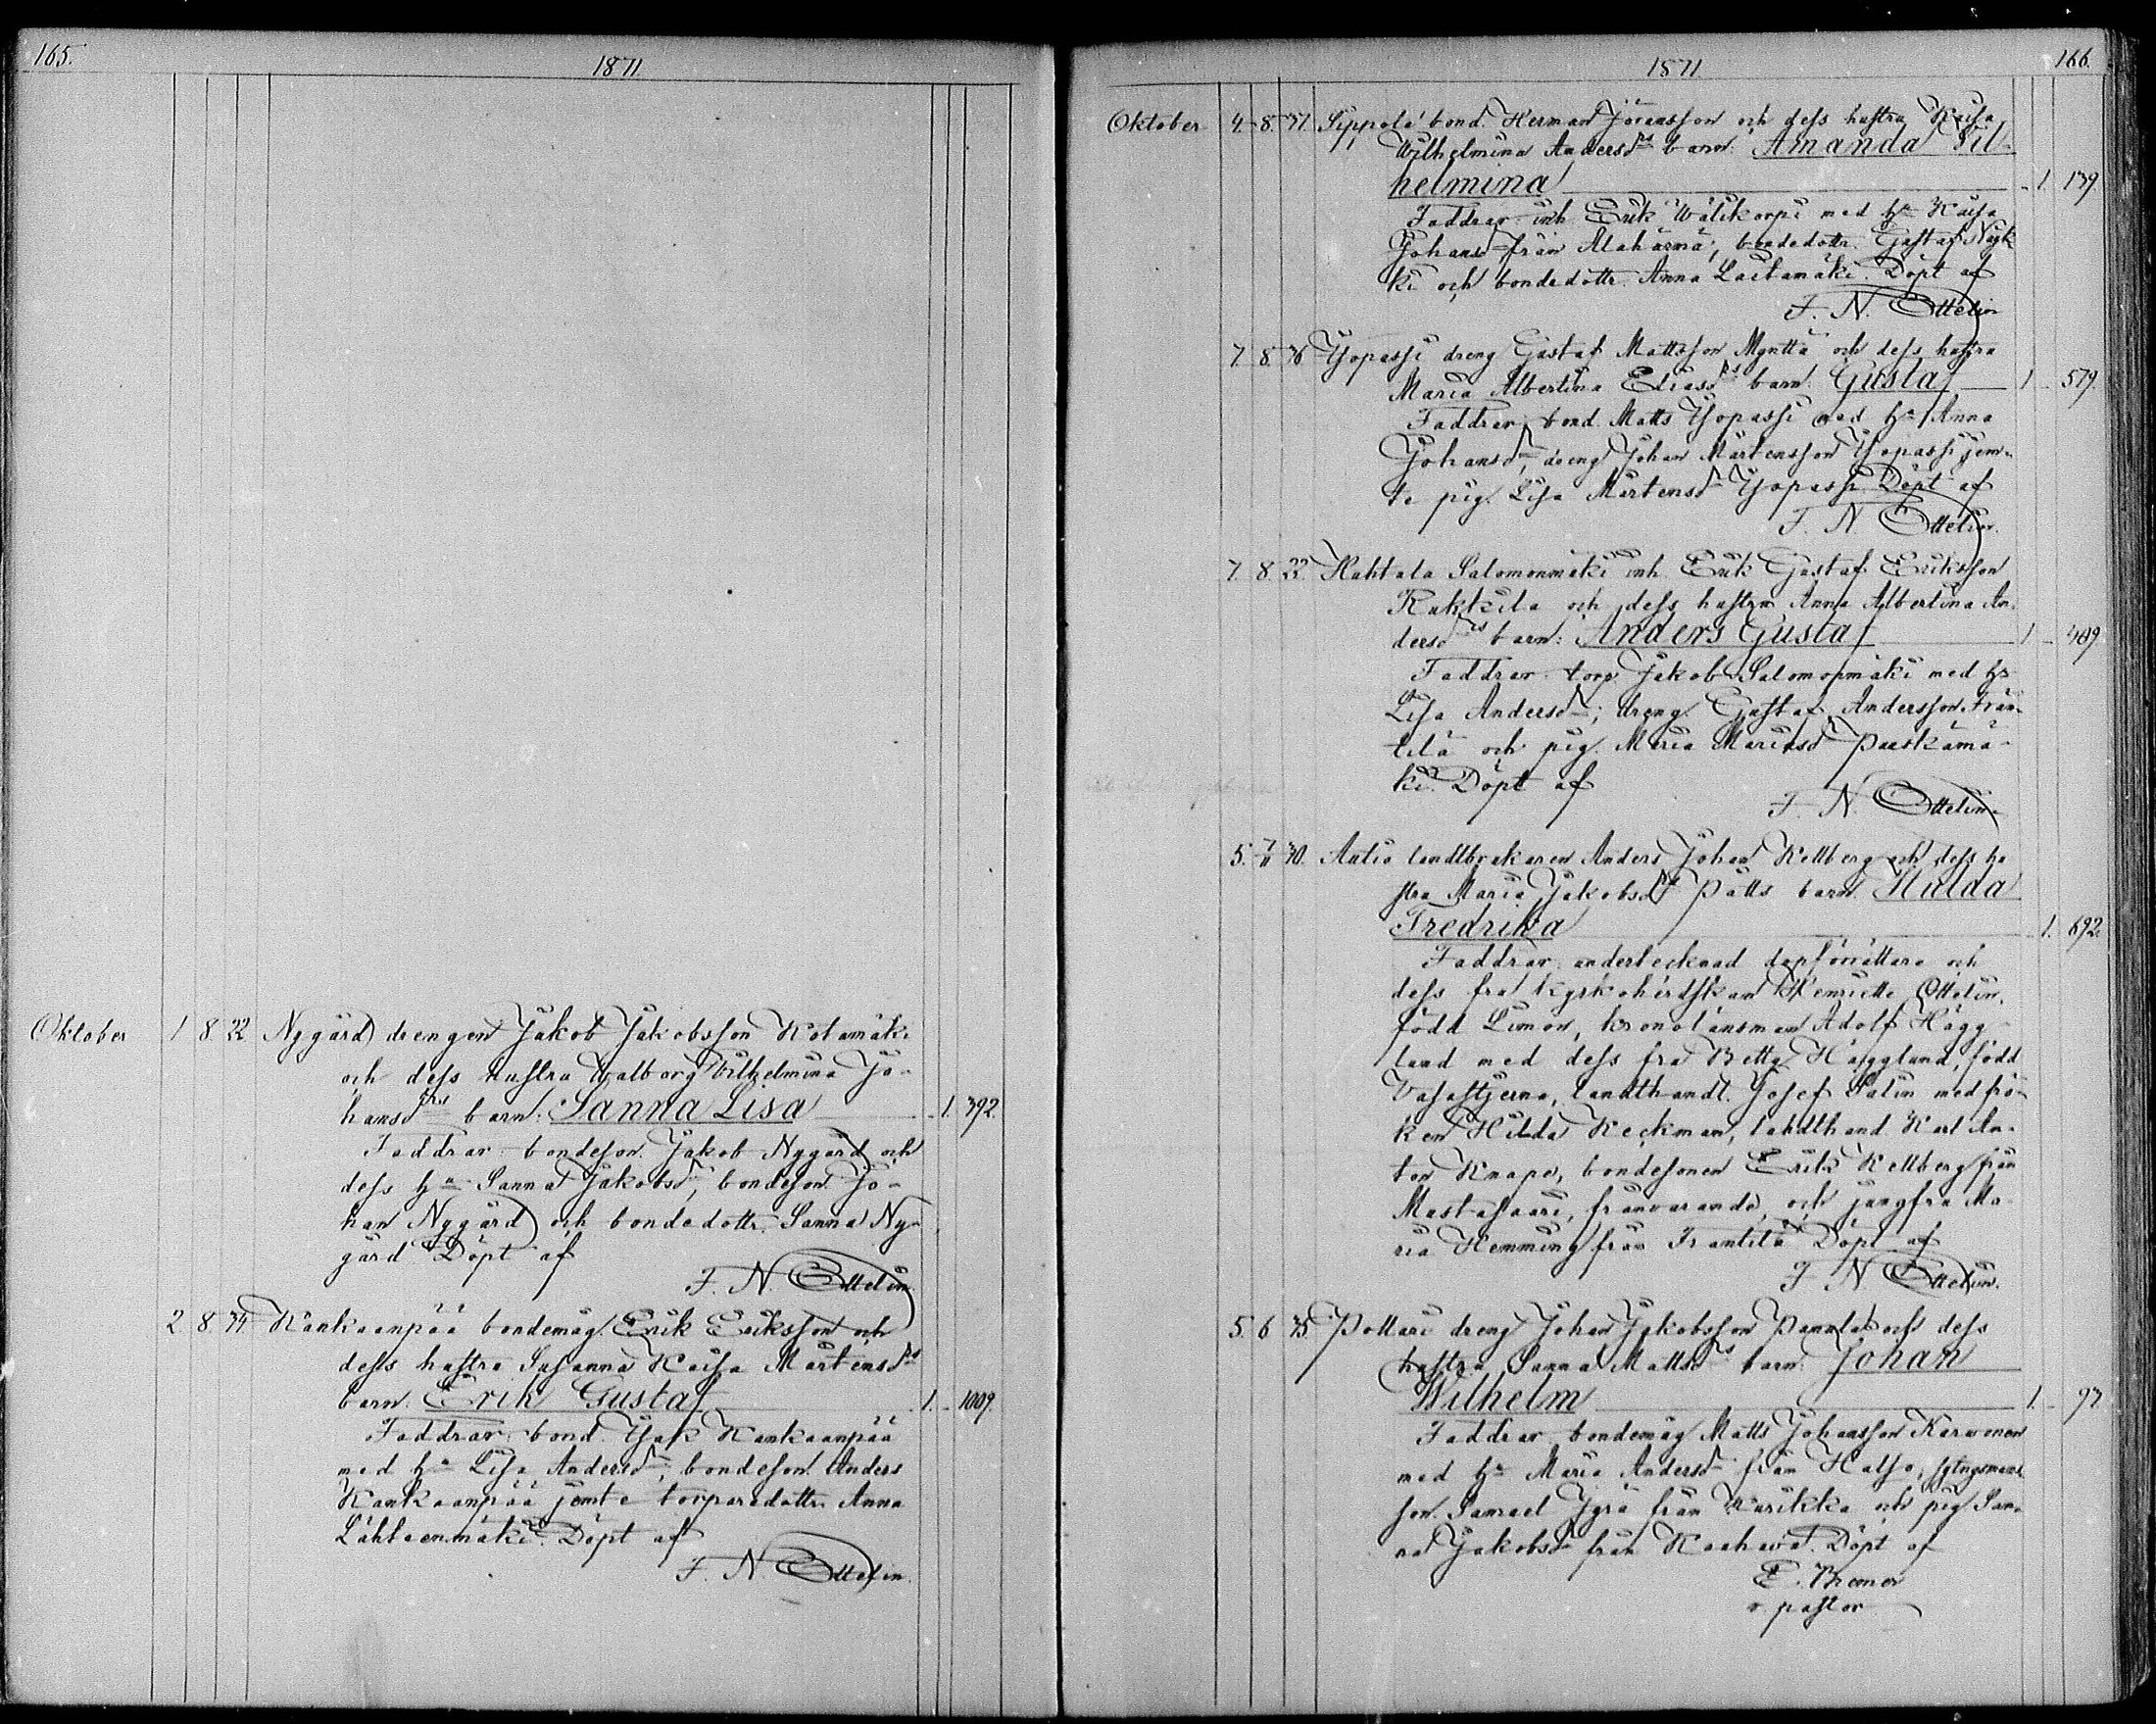 165.
1871
Oktober 1 8. 22 Nygård drengen Jakob Jakobsson Kotamäki
och dess hustru Walborg Wilhelmina Jo-
hansdrs barn: Sanna Lisa 1. 392.
Faddrar: bondeson Jakob Nygård och
dess hu Sanna Jakobsdr, bondeson Jo-
han Nygård och bondedottr. Sanna Ny-
gård Döpt af
F. N. Ottelin.
2. 8. 34. Kankaanpää bondemåg. Erik Eriksson och
dess hustru Susanna Kaisa Mårtensdrs
barn: Erik Gustaf 1. 1009.
Faddrar: bond. Jak Kankaanpää
med hu Lisa Andersdr, bondeson Anders
Kankaanpää jemte torparedottr. Anna
Lähteenmäki. Döpt af
F. N. Ottelin.
166.
1871
Oktober 4. 8. 37. Sippola bond. Herman Jöransson och dess hustru Kaisa
Wilhelmina Andersdrs barn: Amanda Vil-
helmina 1. 139.
Faddrar: inh. Erik Välikorpi med hu Kaisa
Johansdr från Alahärmä, bondedottr. Gustaf
ki och bondedottr. Anna Laitamäki. Döpt af
F. N. Ottelin
7. 8. 36 Yopassi dreng Gustaf Mattsson Myntta och dess hustru
Maria Albertina Eliasdrs barn: Gustaf 1 579.
Faddrar: bond. Matts Yopassi med hu Anna
Johansdr, dreng Johan Mårtensson Yopassi jem-
te pig. Lisa Mårtensdr Yopassi Döpt af
F. N. Ottelin.
7. 8. 23. Huhtala Salomonmäki inh. Erik Gustaf Eriksson
och dess hustru Anna Albertina An-
dersdrs barn: Anders Gustaf 1 409
Faddrar: torp Jakob Salomonmäki med hu
Lisa Andersdr, dreng. Gustaf Andersson Frän-
tilä och pig. Maria Mariasdr Paeskämä-
ki. Döpt af
F. N. Ottelin.
5. 7/11 30. Autio landtbrukaren Anders Johan Kellberg och dess hu
stru Maria Jakobsdr Pätts barn Hulda
Fredrika 1. 692.
Faddrar: undertecknad dopförrättare och
dess fru kyrkoherdskan Henriette Ottelin,
född Limon, kronolänsman Adolf Hägg-
lund med dess fru Betty Hägglund, född
Vasastjerna, landthandl. Josef Salin med frö-
ken Hilda Keckman, landthand Karl An-
ton Knape, bondesonen Erik Kellberg från
Mustasaari, frånvarande, och jungfru Ma-
ria Hemming från Frantilä Döpt af
F. N. Ottelin.
5. 6 35. Pollari dreng Johan Jakobsson Pannula och dess
hustru Sanna Mattsdrs barn: Johan
Wilhelm 1. 97
Faddrar: bondemåg Matts Johansson Karvonen
med hu Maria Andersdr från Halso,
son Samuel Jyrä från Kurikka och pig. San-
na Jakobsdr från Kauhava. Döpt af
E. Bremer
v. pastor